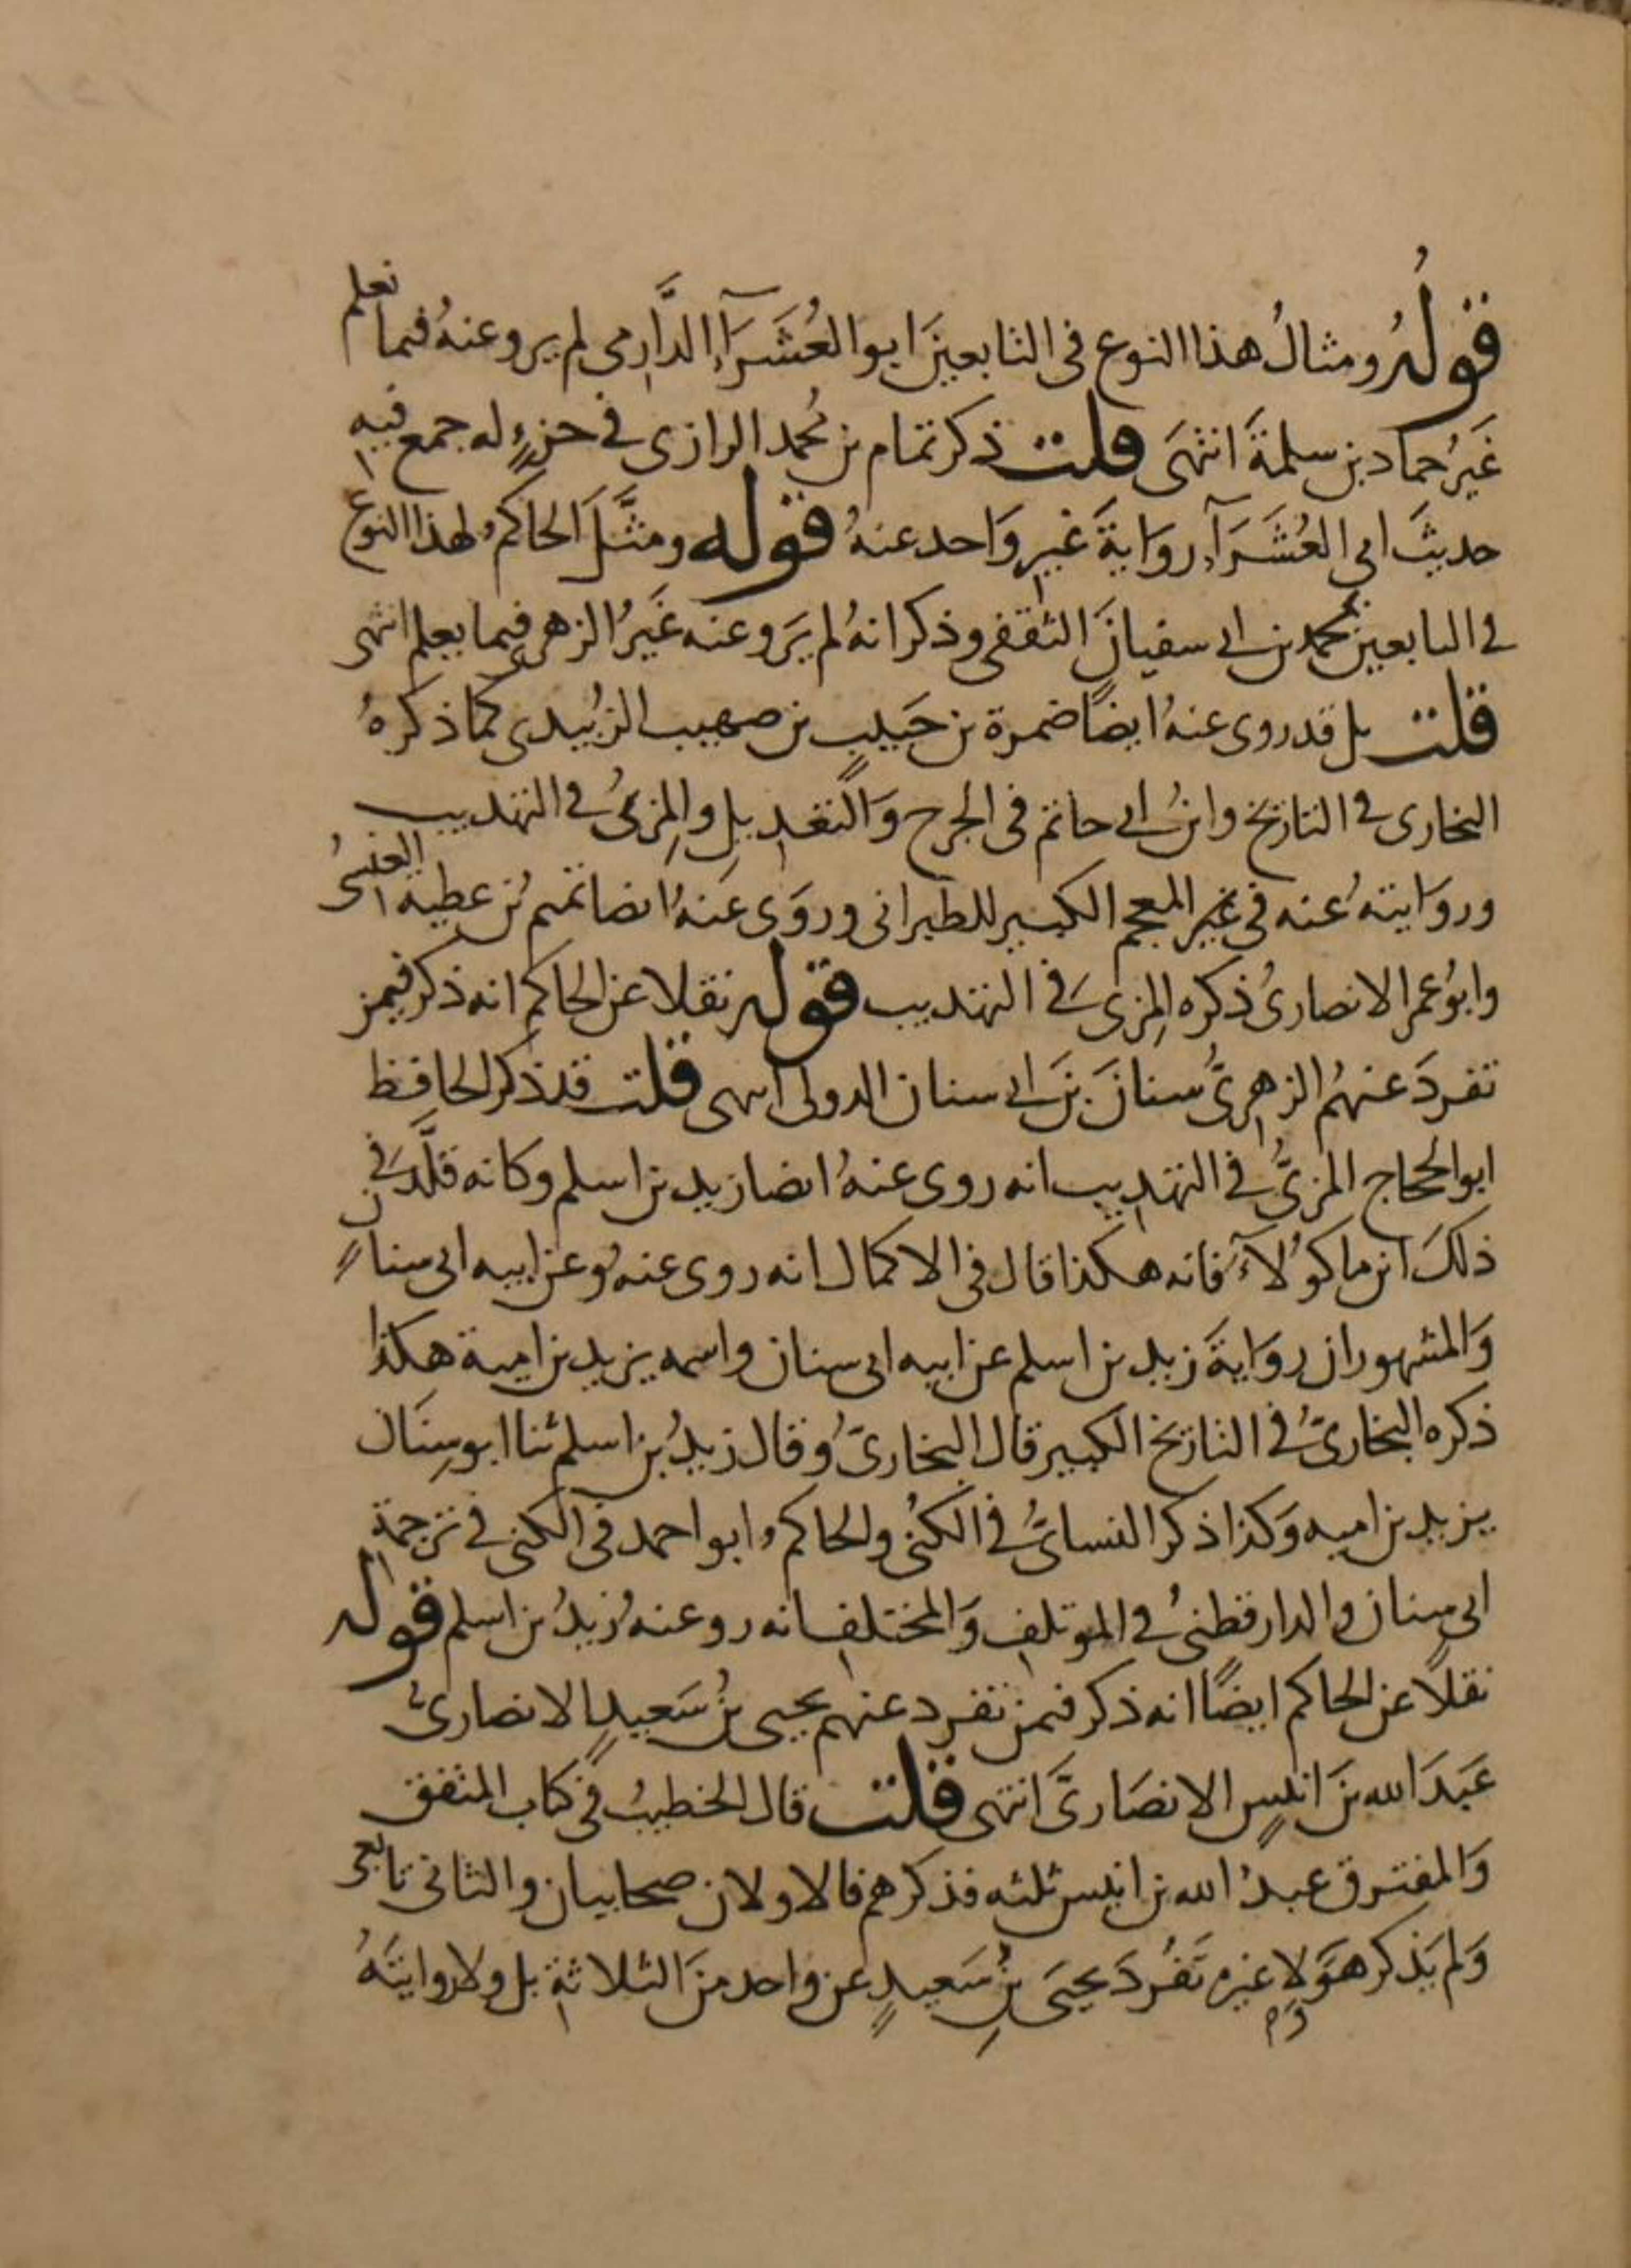 قولهُ ومثالُ هذا النوع فى التابعينَ ابو العُشَرَآءِ الدَّارِمى لم يرو عنهُ فيما نعلم
غَيرُ حماد بن سلمةَ انتهَى قلت ذكر تمام بن مُحمد الرازى فى جزءٍ له جمع فيهِ
حديثَ ابى العُشَرَآءِ روَايةَ غيرِ وَاحد عنهُ قوله ومثَّلَ الحاكم لهذا النوع
فى التابعين بمحمد بن ابى سفيانَ الثقفى وذكر انهُ لم يَرو عنه غَيرُ الزهرى فيما يعلم انتهى
قلت بل قد روى عنهُ ايضًا ضمرة بن حَبيبٍ بن صهيب الزُبيدى كما ذكرهُ
البخارى فى التاريخ وابنُ ابى حاتم فى الجرح وَالتعديلِ والمِزىُّ فى التهذيب
وروَايتهُ عنه فى غير المعجم الكبير للطبرانى وروَى عَنهُ ايضا تميم بُن عطية العنسىُ
وابوُ عمر الانصارىُ ذكره المِزى فى التهذيب قوله نقلا عن الحاكم انه ذكر فيمن
تفردَ عنهمُ الزهرِىُّ سنانَ بنَ ابى سنان الدولى انتهى قلت قد ذكر الحافظ
ابو الحجاج المزىُّ فى التهذيب انه روى عنهُ ايضا زيد بن اسلم وكانه قلَّد فى
ذلكَ ابن ماكوُلآءَ فانه هكذا قال فى الاكمال انه روى عنه وُعن ابيه ابى سنانٍ
وَالمشهور ان روَايةَ زيد بن اسلم عن ابيه ابى سنان واسمه يزيد بن امية هكذا
ذكره البخارىُّ فى التاريخ الكبير قال البخارىّ وُقال زيدُ بن اسلم ثنا ابو سِنَان
يزيد بن اميه وَكذا ذكر النسائُّ فى الكنُى والحاكم ابو احمد فى الكنى فى ترجمةِ
ابى سنان والدارقطنىُ فى الموتلفِ وَالمختلف انه رو عنه زيدُ بن اسلم قوله
نقلًا عن الحاكم ايضًا انه ذكر فيمن تفرد عنهم يحيى بنُ سَعيدٍ الانصارىُ
عَبدَ الله بنَ انيسٍ الانصَارىَّ انتهى قلت قال الخطيبُ فى كتاب المتفق
وَالمفترق عبدُ الله بن انيس ثلثه فذكرهم فالاولان صحابيان والثانى تابعى
وَلم يَذكر هوَلا غيرم تَفُردَ يحيَى بنِ سَعيدٍ عن واحد منَ الثلاثةِ بل ولا روايتَهُ